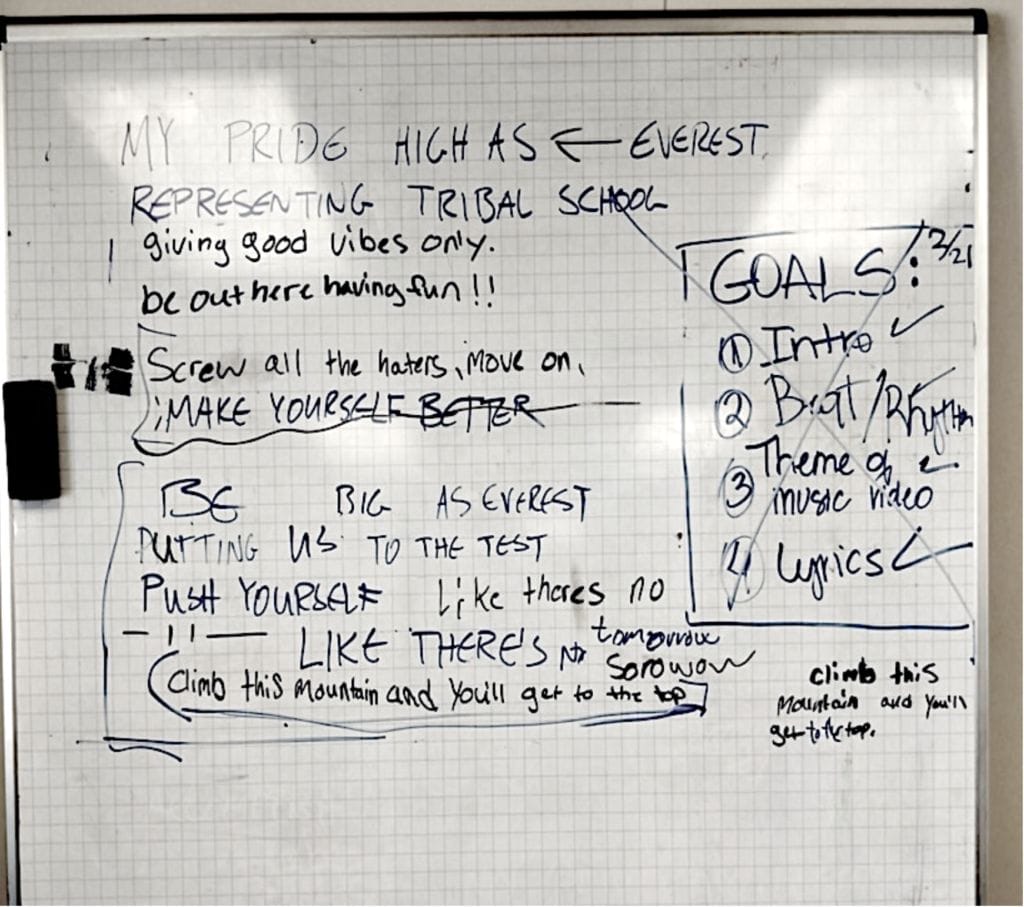 MY PRIDE HIGH AS ← EVEREST
REPRESENTING TRIBAL SCHOOL
giving good vibes only.
be out here having fun!!
Screw all the haters, move on,
MAKE YOURSELF BETTER
BE BIG AS EVEREST
PUTTING US TO THE TEST
PUSH YOURSELF Like theres no
tomorrow
— 11 — LIKE THERE'S no sorowow
Climb this Mountain and You'll get to the top
GOALS: 2/21
① Intro ✓
② Beat/Rhythm ✓
③ Theme of music video ✓
④ Lyrics ✓
climb this
Mountain and You'll
get to the top.